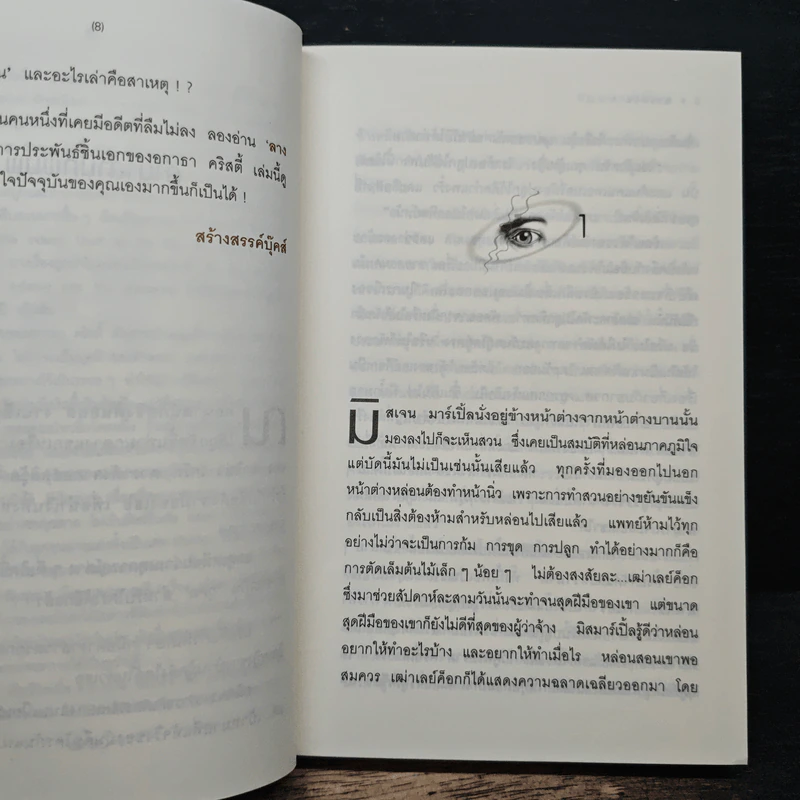 (8)
น' และอะไรเล่าคือสาเหตุ ! ?
นคนหนึ่งที่เคยมีอดีตที่ลืมไม่ลง ลองอ่าน 'ลาง
การประพันธ์ชิ้นเอกของอกาธา คริสตี้ เล่มนี้ดู
ใจปัจจุบันของคุณเองมากขึ้นก็เป็นได้ !
สร้างสรรค์บุ๊คส์
1
มิสเจน มาร์เปิ้ลนั่งอยู่ข้างหน้าต่างจากหน้าต่างบานนั้น
มองลงไปก็จะเห็นสวน ซึ่งเคยเป็นสมบัติที่หล่อนภาคภูมิใจ
แต่บัดนี้มันไม่เป็นเช่นนั้นเสียแล้ว ทุกครั้งที่มองออกไปนอก
หน้าต่างหล่อนต้องทำหน้านิ่ว เพราะการทำสวนอย่างขยันขันแข็ง
กลับเป็นสิ่งต้องห้ามสำหรับหล่อนไปเสียแล้ว แพทย์ห้ามไว้ทุก
อย่างไม่ว่าจะเป็นการก้ม การขุด การปลูก ทำได้อย่างมากก็คือ
การตัดเล็มต้นไม้เล็ก ๆ น้อย ๆ ไม่ต้องสงสัยละ...เฒ่าเลย์ค็อก
ซึ่งมาช่วยสัปดาห์ละสามวันนั้นจะทำจนสุดฝีมือของเขา แต่ขนาด
สุดฝีมือของเขาก็ยังไม่ดีที่สุดของผู้ว่าจ้าง มิสมาร์เปิ้ลรู้ดีว่าหล่อน
อยากให้ทำอะไรบ้าง และอยากให้ทำเมื่อไร หล่อนสอนเขาพอ
สมควร เฒ่าเลย์ค็อกก็ได้แสดงความฉลาดเฉลียวออกมา โดย